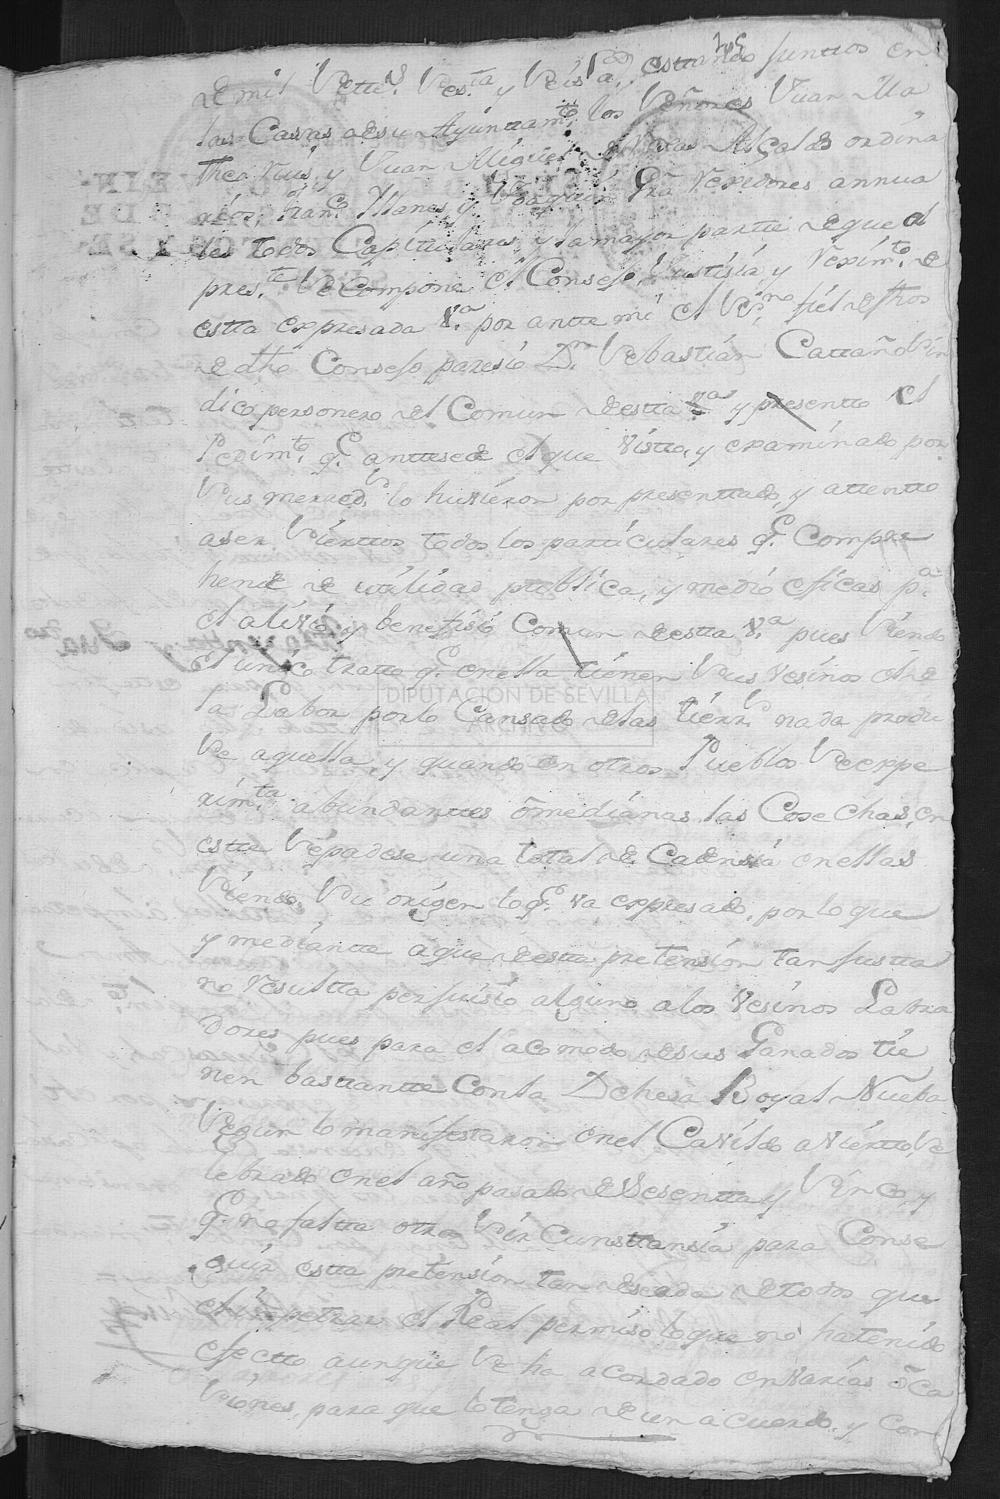 de mil Sette.s Ses.ta y Seis a.s estando Juntos en
las Cassas de su Ayuntam.to los Señores Juan Ma
theo Ruis, y Juan Miguel de Varas Alcaldes ordina
rios, Fran.co Yllanes y Joaquin Gra Rexidores annua
les todos Capitulares y la mayor partte de que al
pres.te Se compone el Consejo, Justisia y Reximt.o de
estta expresada V.a por antte mi el Es.no fiel de fhos
de dho Consejo paresio D.n Sebastian Cattaño Sin
dico personero del Comun destta V.a y presentto el
Pedimt.o q.e anttesede el que Vistto, y examinado por
Sus mercedes lo huvieron por presenttado, y attentto
a ser Sierttos todos los particulares q.e Compre
hende de utilidad publica, y medio eficas p.a
el alivio y benefisio Comun destta V.a pues Siendo
el unico tratto q.e en ella tienen Sus vesinos el de
la Labor por lo Cansado de las tierr.s nada produ
Se aquella y quando en otros Pueblos Se expe
rim.ta abundanttes ô medianas, las Cosechas, en
estte Se padese una total de Cadensia en ellas
Siendo Su origen lo q.e va expresado, por lo que
y mediantte a que destta pretension tan justta
no resultta perjuisio alguno a los vesinos Labra
dores pues para el acomodo de sus Ganados tie
nen basttantte Con la Dehesa Boyal Nueba
Segun lo manifestaron en el Cavildo avierto Se
lebrado en el año pasado de Sesentta y Sinco, y
q.e no faltta otra Sircunsttansia para Conse
guir estta pretension tan deseada de todos que
el impetrar el Real permiso lo que no ha tenido
efectto aunque Se ha acordado en varias oca
siones, para que lo tenga de un acuerdo, y con
DIPUTACION DE SEVILLA
ARCHIVO